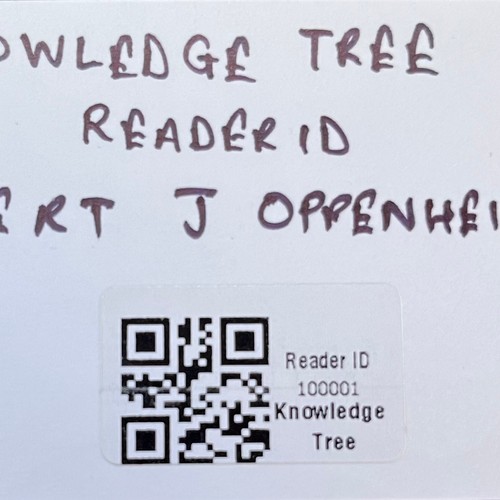 OWLEDGE TREE
READER ID
ERT J OPPENHEI
Reader ID
100001
Knowledge
Tree